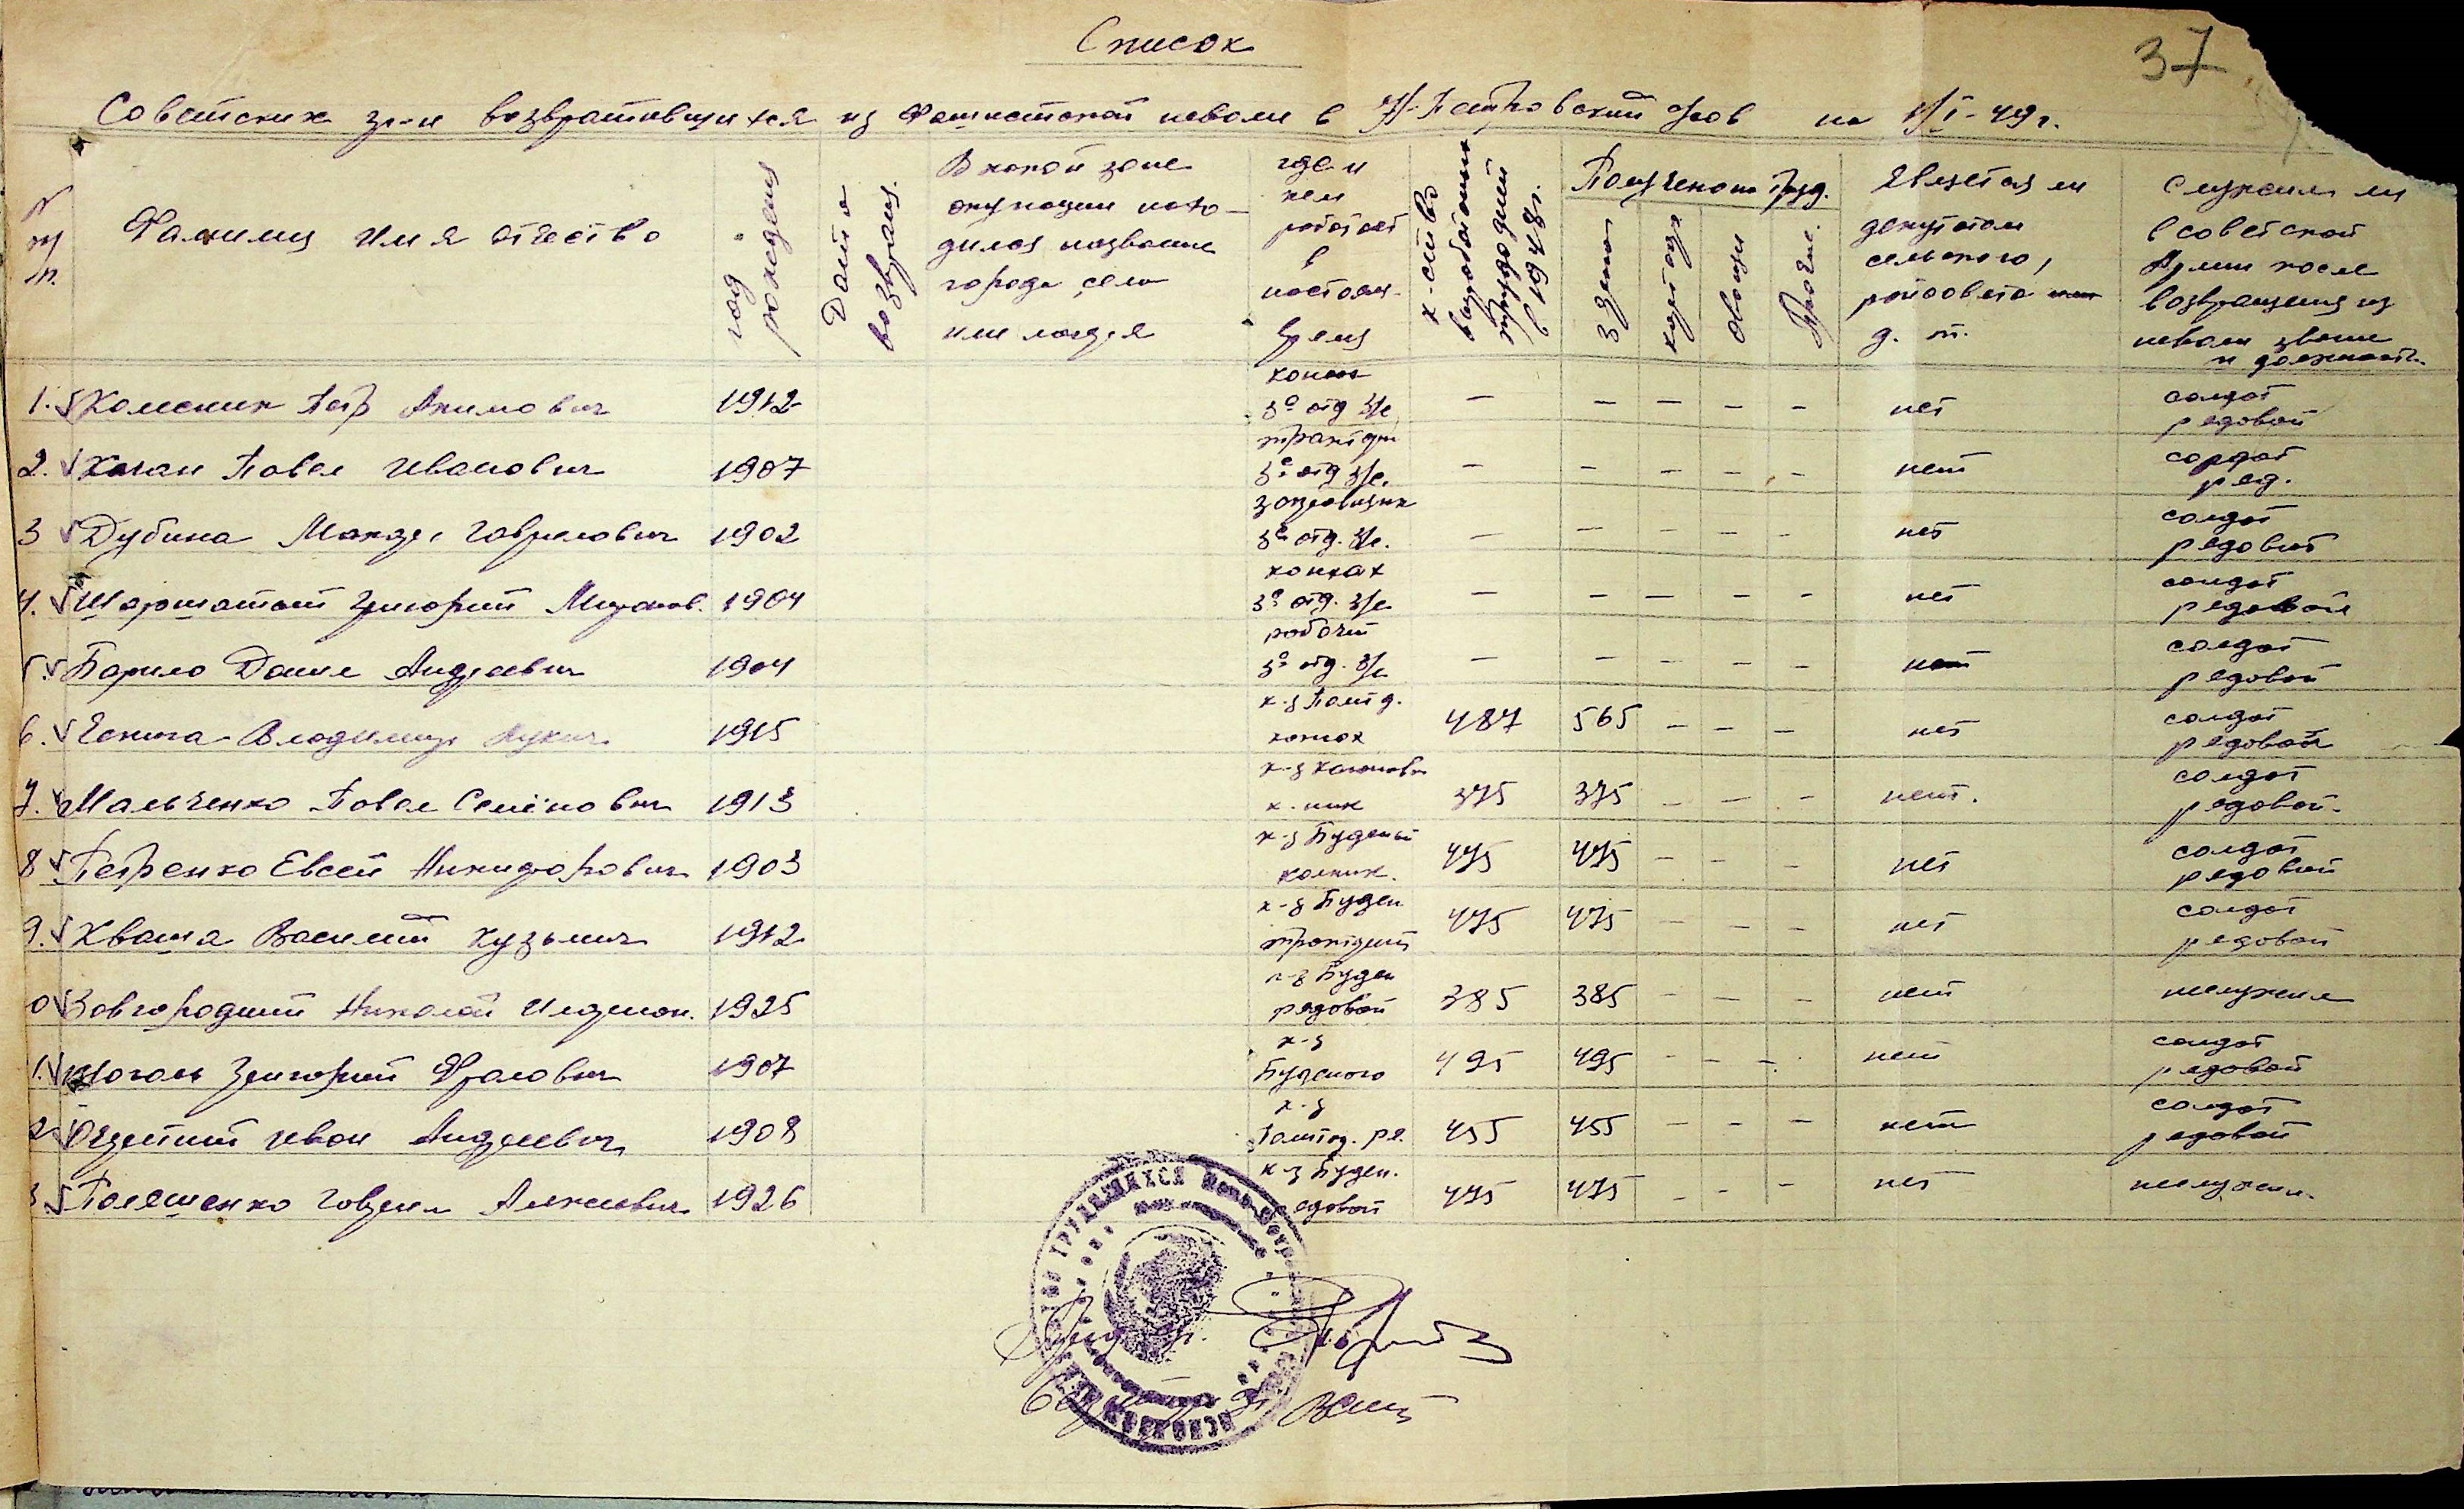 Список
37
Советских гр-н возвратившихся из фашистской неволи в Н-Петровский р-ов на 1/I-49 г.
№ п/п.
Фамилия имя отчество
год рождения
Дата возвращ.
В какой зоне
окупации нахо-
дился название
города села
или лагеря
где и
кем
работает
в
настоящ.
время
к-ство
выработан
трудодней
в 1948 г.
Получено на труд.
Зерна
культода
Овощи
Прочие.
Является ли
депутатом
сельского,
райсовета
д. т.
Служил ли
в советской
Армии после
возвращения из
неволи звание
и должность
1. Петр Акимович 1912 конюх 3е отд З/с — — — — — нет солдат рядовой
2. Каган Павел Иванович 1907 3е отд З/с. — — — — — нет солдат ряд.
3 Дубина Макар Гаврилович 1902 3е отд. З/с. — — — — — нет солдат рядовой
4. Григорий 1904 конюх 3е отд. З/с — — — — — нет солдат рядовой
5. Барило Данил Андреевич 1904 рабочий 3е отд. З/с — — — — — нет солдат рядовой
6. Владимир Лукич 1915 конюх 487 565 — — — нет солдат рядовой
7. Мальченко Павел Семёнович 1913 к-ник 375 375 — — — нет. солдат рядовой.
8 Петренко Евсей Никифорович 1903 к-з Буденый колник. 475 475 — — — нет солдат рядовой
9. Кваша Василий Кузьмич 1912 к-з Буден 475 475 — — — нет солдат рядовой
0 Завгородний Николай 1925 к-з Буден рядовой 385 385 — — — нет не служил
1. Григорий Фролович 1907 к-з Буденого 495 495 — — — нет солдат рядовой
2. Иван Андреевич 1908 к-з 455 455 — — — нет солдат рядовой
3. Поляшенко Гаврил Алексеевич 1926 к-з Буден. рядовой 475 475 — — — нет не служил.
ТРУДЯЩИХСЯ